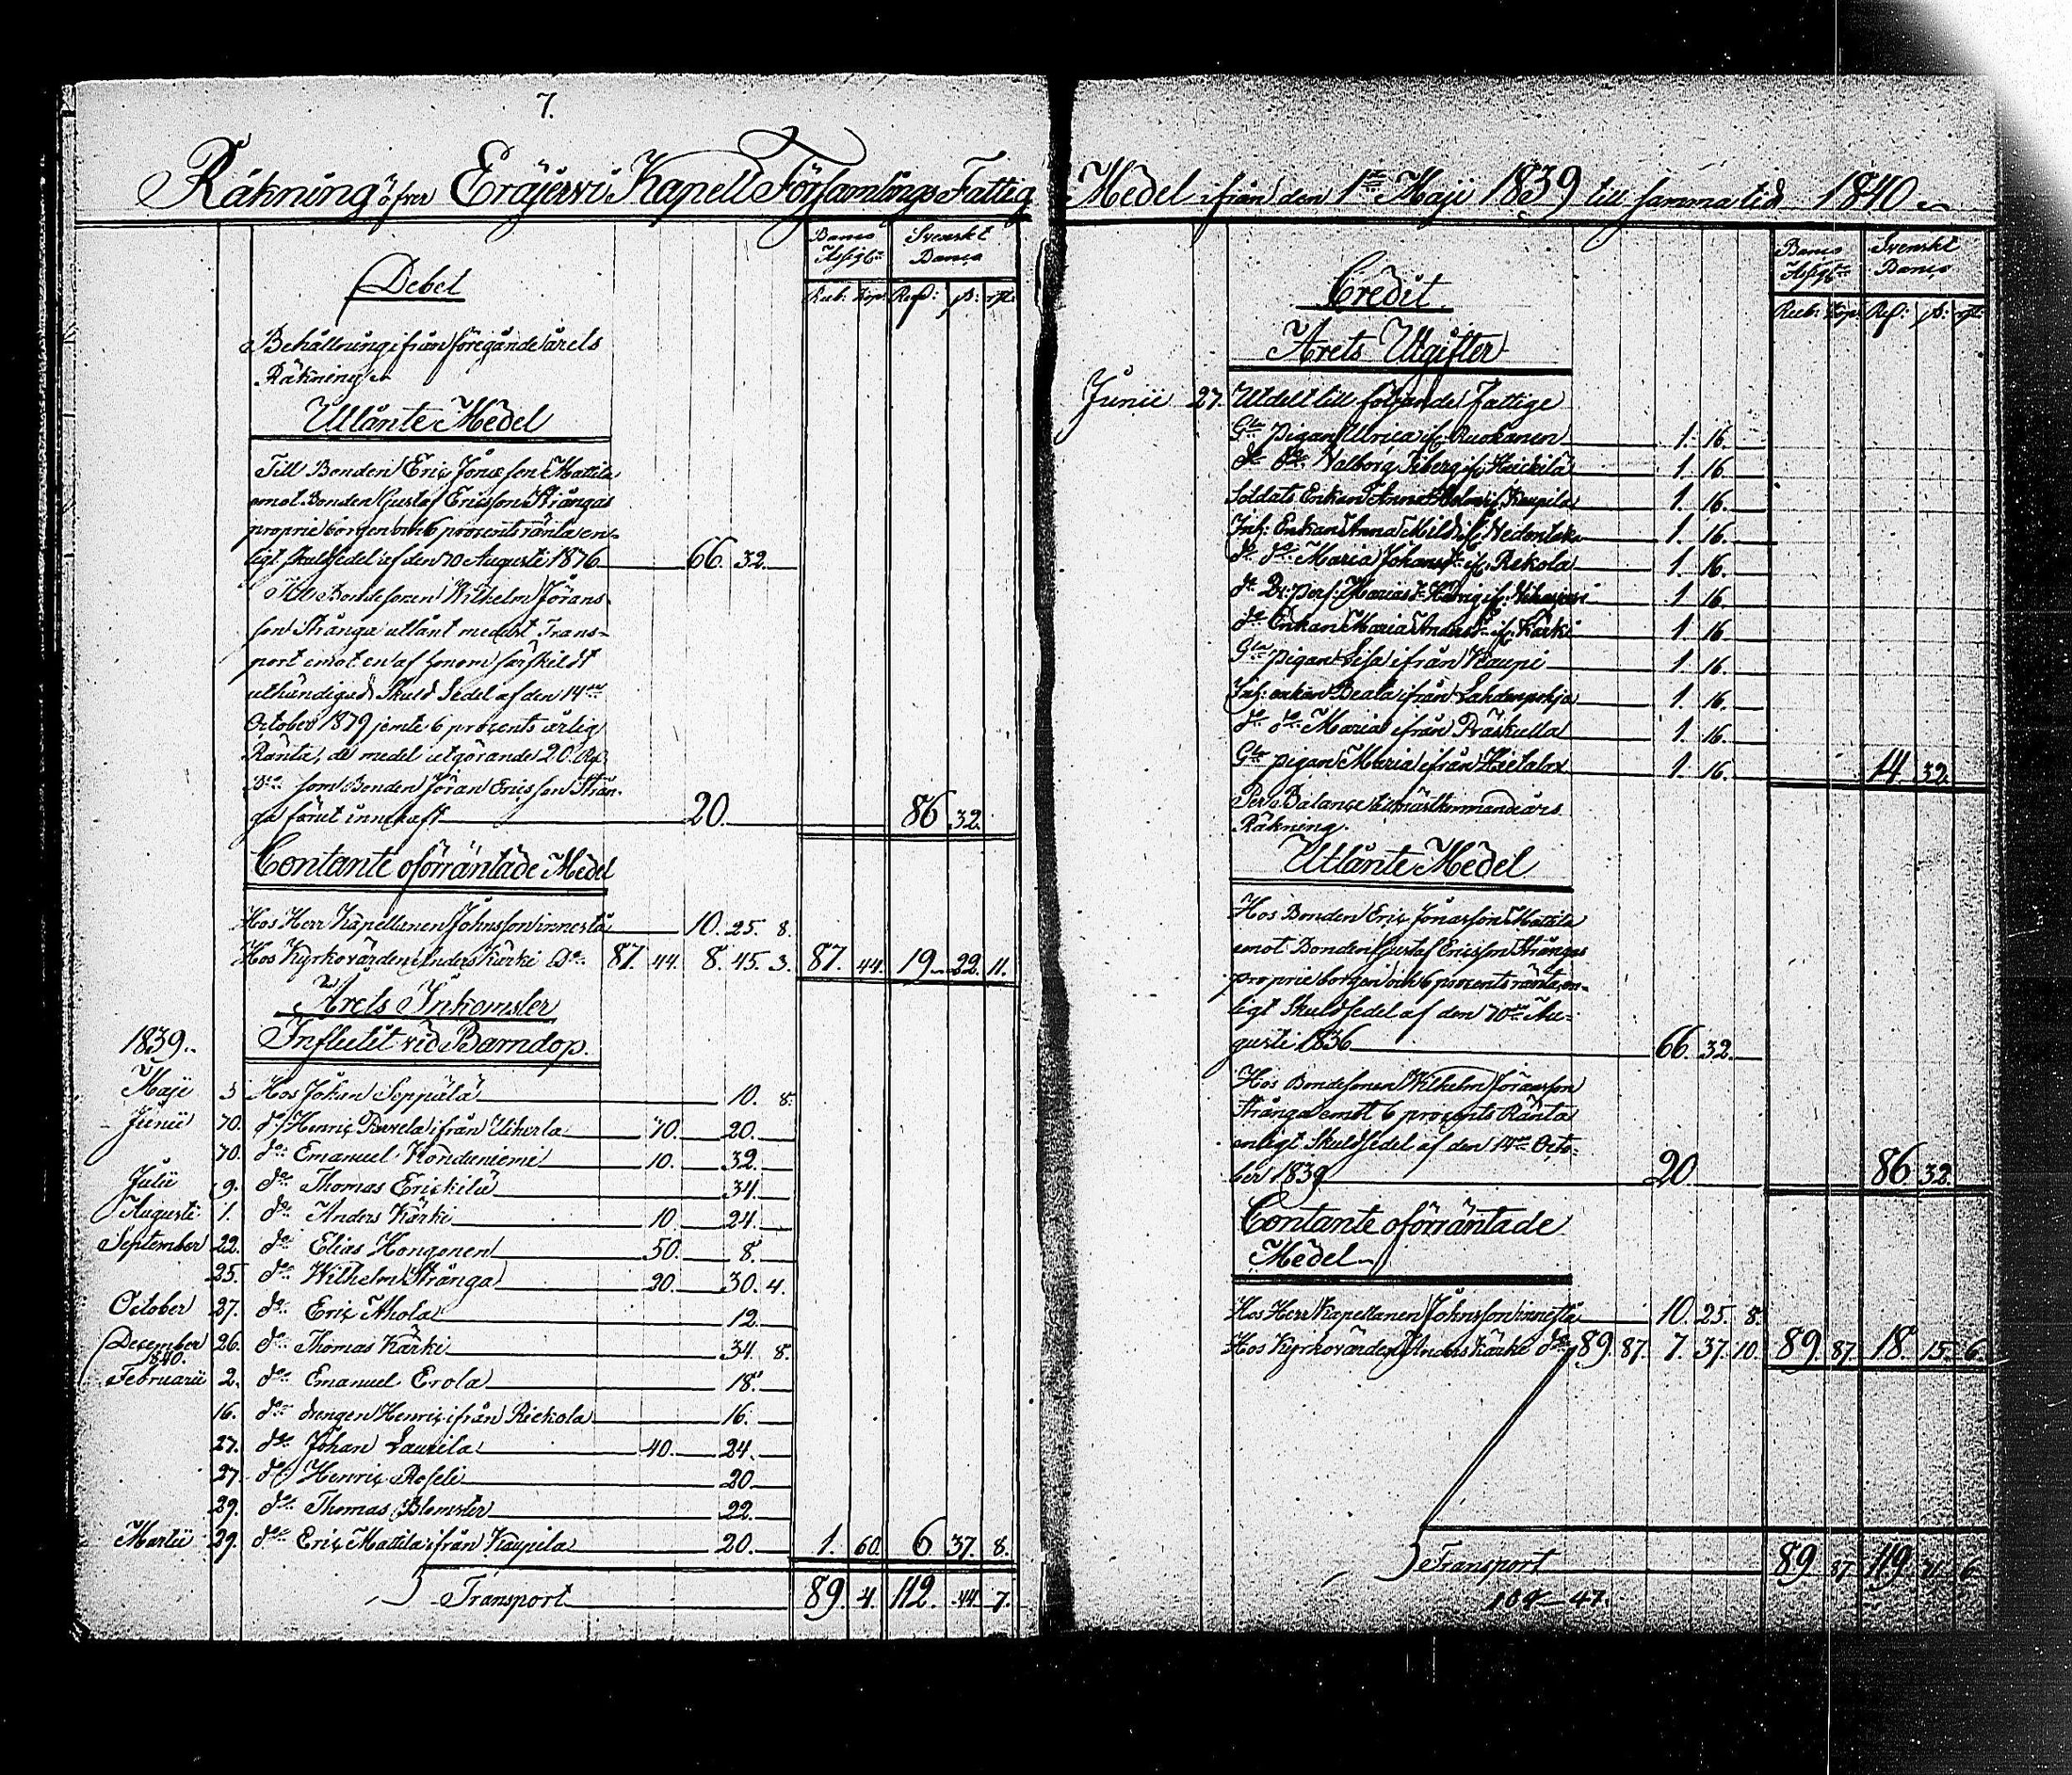 7.
Räkning öfver Eräjerwi Kapell Församlings Fattig
Banco Assigt:r Svenskt Banco
Debet
Rub: Kop: Rd: ß: rst:
Behållning ifrån föregånde årets
Räkning
Utlånte Medel
Till Bonden Eric Jönsson Mattila
emot Bonden Gustaf Ericsson Strångas
proprie borgen och 6 procents ränta en-
ligt Skuldsedel af den 10 Augusti 1836 66. 32.
Till Bondesonen Wilhelm Jörans-
son Strånga utlånt medelst Trans-
port emot en af honom särskildt
uthändigad Skuld Sedel af den 14de
October 1839 jemte 6 procents årlig
Ränta, de medel utgörande 20 Rd
B:co som Bonden Jöran Ericsson Strån-
ga förut innehaft 20. 86 32.
Contante oförräntade Medel
Hos Herr Kapellanen Johnsson innestå 10. 25. 8.
Hos Kyrkovärden Anders Kärki D:o 87. 44. 8. 45. 3. 87. 44. 19. 22. 11.
Årets Inkomster
1839. Influtit vid Barndop.
Maji 5 Hos Johan Seppälä 10. 8.
Junii 10. d:o Henric Pavela ifrån Uiherla 10. 20.
10. d:o Emanuel Kondunieme 10. 32.
Julii 9. d:o Thomas Erickilä 34.
Augusti 1. d:o Anders Kärki 10. 24.
September 22. d:o Elias Hongonen 50. 8.
25. d:o Wilhelm Strånga 20. 30. 4.
October 27. d:o Eric Ahola 12.
December 26. d:o Thomas Kärki 34. 8.
1840.
Februarii 2. d:o Emanuel Erola 18.
16. d:o drengen Henric ifrån Rickola 16.
27. d:o Johan Laurila 40. 24.
27. d:o Henric Roseli 20
29. d:o Thomas Blomster 22.
Martii 29. d:o Eric Mattila ifrån Kaupila 20. 1. 60. 6 37. 8.
Transport 89. 4. 112. 44. 7.
Medel ifrån den 1sta Maji 1839 till samma tid 1840
Banco Assigt:r Svenskt Banco
Credit
Rub: Kop: Rd: ß: rst:
Årets Utgifter
Junii 27. Utdelt till följande Fattige
G:la pigan Ulrica if. Ruokonen 1. 16.
d:o d:o Valborg if. Heickilä 1. 16.
Soldats Enkan Anna if. Kaupila 1. 16.
Inh: Enkan Anna if. 1. 16.
d:o d:o Maria Johansd:r if. Rekola 1. 16.
d:o Maria if. 1. 16.
d:o Enkan Maria Andersd:r if. Kärki 1. 16.
G:la pigan Lisa ifrån Kaupi 1. 16.
Inh: enkan Beata ifrån Lahdenpohja 1. 16.
d:o d:o Maria ifrån Präskulla 1. 16.
G:la pigan Maria ifrån Hietalax 1. 16. 14 32.
Pero Balance til nästkommande års
Räkning.
Utlånte Medel
Hos Bonden Eric Jönasson Mattila
emot Bonden Gustaf Ericsson Strångas
proprie borgen och 6 procents ränta en-
ligt Skuldsedel af den 10de Au-
gusti 1836 66. 32.
Hos Bondesonen Wilhelm Jöransson
Strånga emot 6 procents Ränta
enligt Skuldsedel af den 14de Octo-
ber 1839 20 86 32.
Contante oförräntade
Medel
Hos Herr Kapellanen Johnsson innestå 10. 25. 8.
Hos Kyrkovärden Anders Kärki d:o 89. 87. 7. 37. 10. 89. 87. 18. 15. 6.
Transport 89 87. 119.